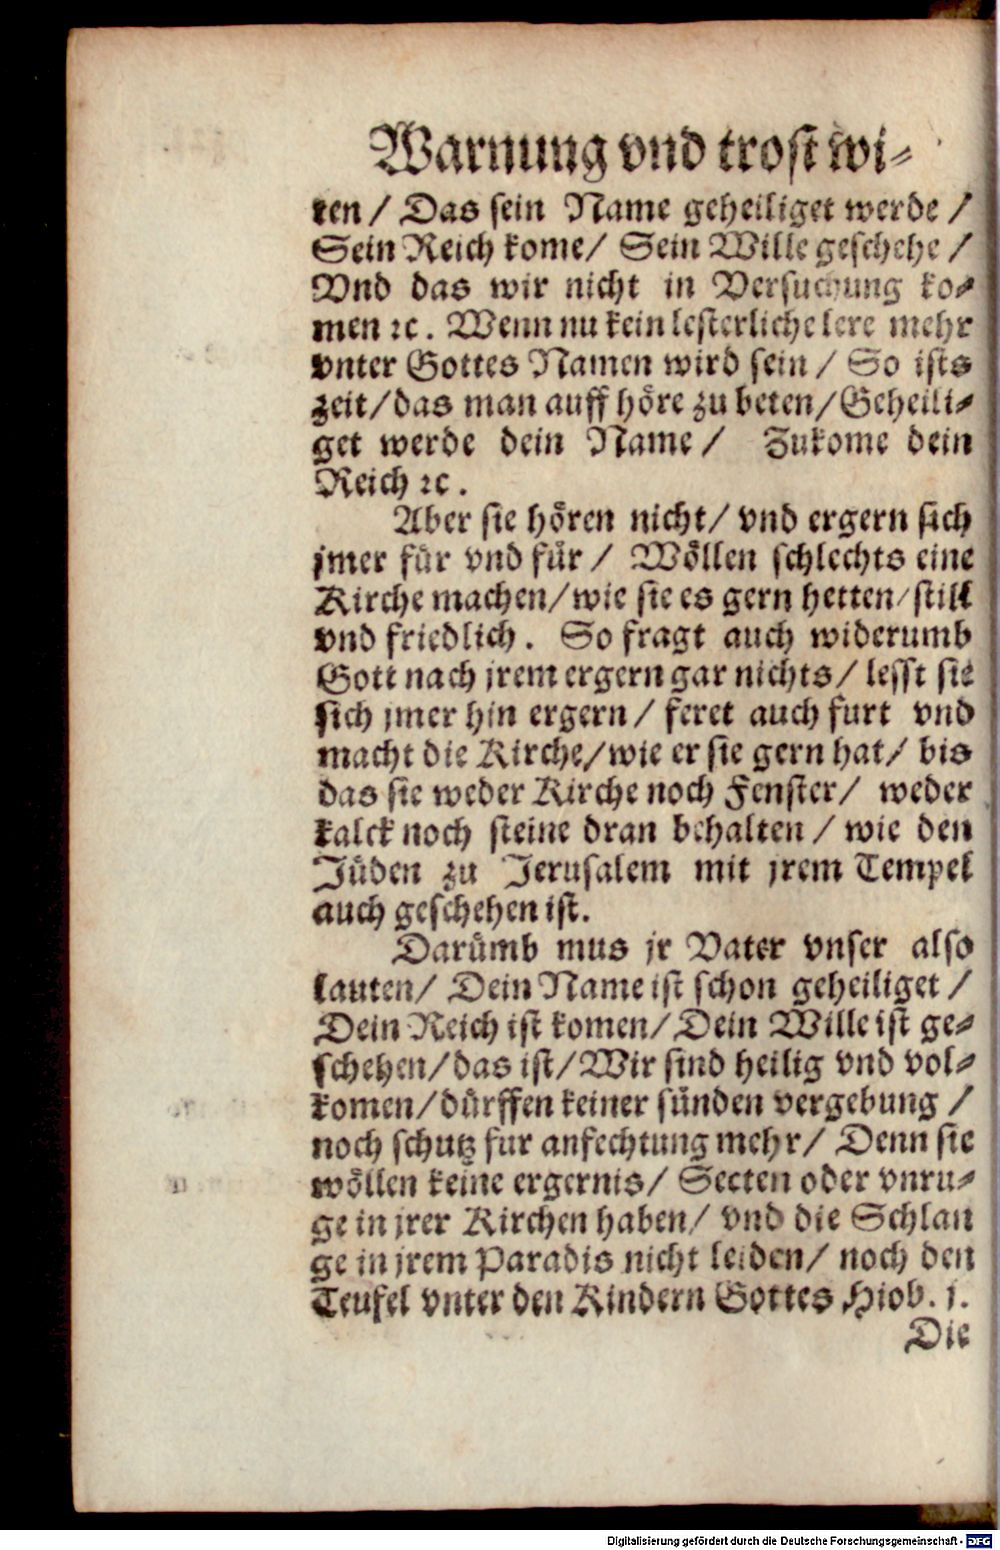 Warnung vnd trost wi-
ten / Das sein Name geheiliget werde /
Sein Reich kome / Sein Wille geschehe /
Vnd das wir nicht in Versuchung ko-
men ꝛc. Wenn nu kein lesterliche lere mehr
vnter Gottes Namen wird sein / So ists
zeit / das man auff höre zu beten / Geheili-
get werde dein Name / Zukome dein
Reich ꝛc.
Aber sie hören nicht / vnd ergern sich
jmer für vnd für / Wöllen schlechts eine
Kirche machen / wie sie es gern hetten / still
vnd friedlich. So fragt auch widerumb
Gott nach jrem ergern gar nichts / lesst sie
sich jmer hin ergern / feret auch furt vnd
macht die Kirche / wie er sie gern hat / bis
das sie weder Kirche noch Fenster / weder
kalck noch steine dran behalten / wie den
Jüden zu Jerusalem mit jrem Tempel
auch geschehen ist.
Darümb mus jr Vater vnser also
lauten / Dein Name ist schon geheiliget /
Dein Reich ist komen / Dein Wille ist ge-
schehen / das ist / Wir sind heilig vnd vol-
komen / dürffen keiner sünden vergebung /
noch schutz fur anfechtung mehr / Denn sie
wöllen keine ergernis / Secten oder vnru-
ge in jrer Kirchen haben / vnd die Schlan
ge in jrem Paradis nicht leiden / noch den
Teufel vnter den Kindern Gottes Hiob. j.
Die
Digitalisierung gefördert durch die Deutsche Forschungsgemeinschaft - DFG